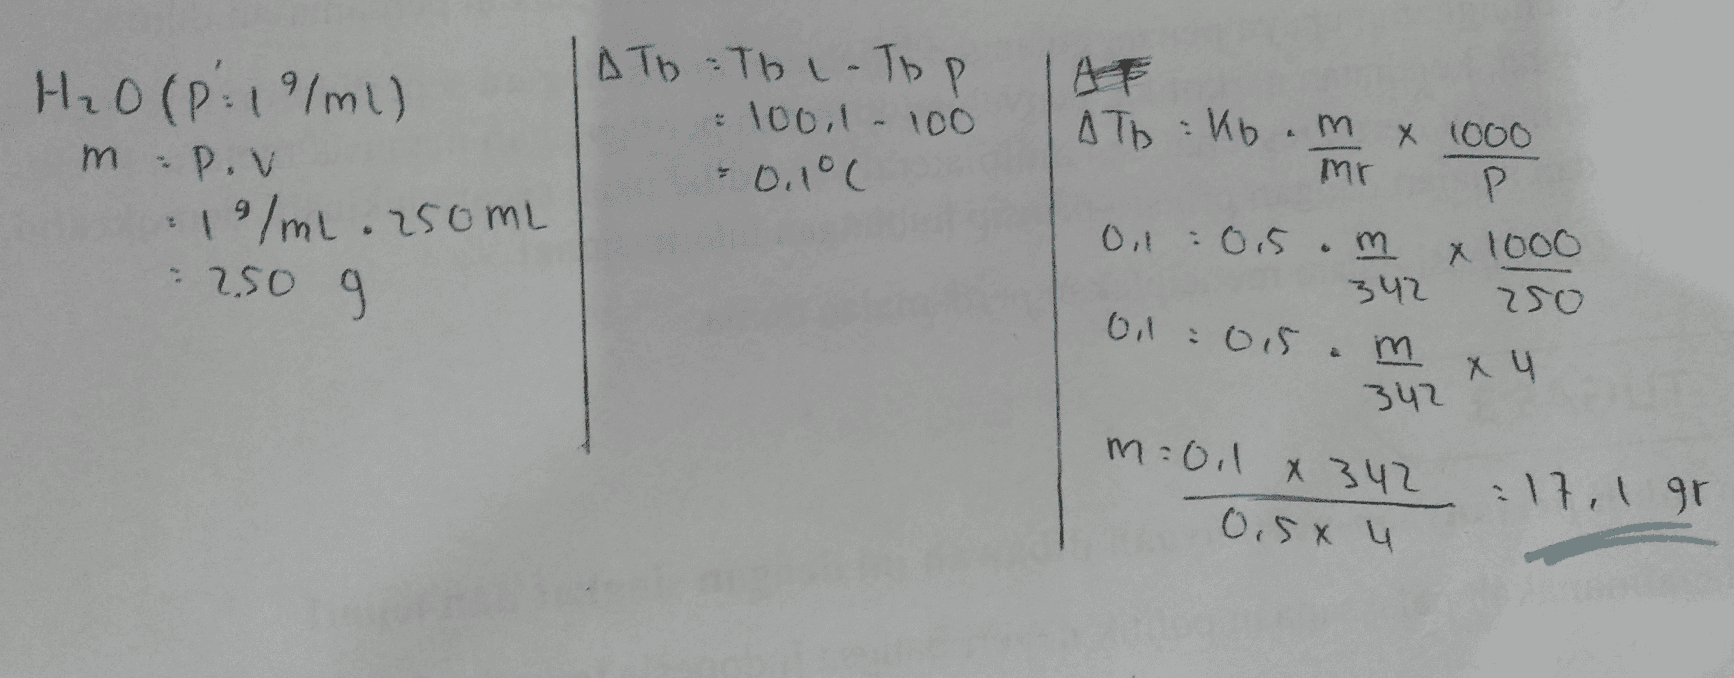 H2O (P = 1 g/mL)
m = P . V
= 1 g/mL . 250 mL
= 250 g
ΔTb = Tb L - Tb p
= 100,1 - 100
= 0,1°C
ΔTb = Kb . m/mr x 1000/P
0,1 = 0,5 . m/342 x 1000/250
0,1 = 0,5 . m/342 x 4
m = 0,1 x 342 / 0,5 x 4 = 17,1 gr